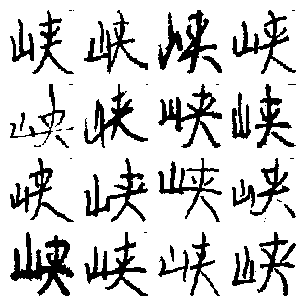 峡峡峡峡
峡峡峡峡
峡峡峡峡
峡峡峡峡